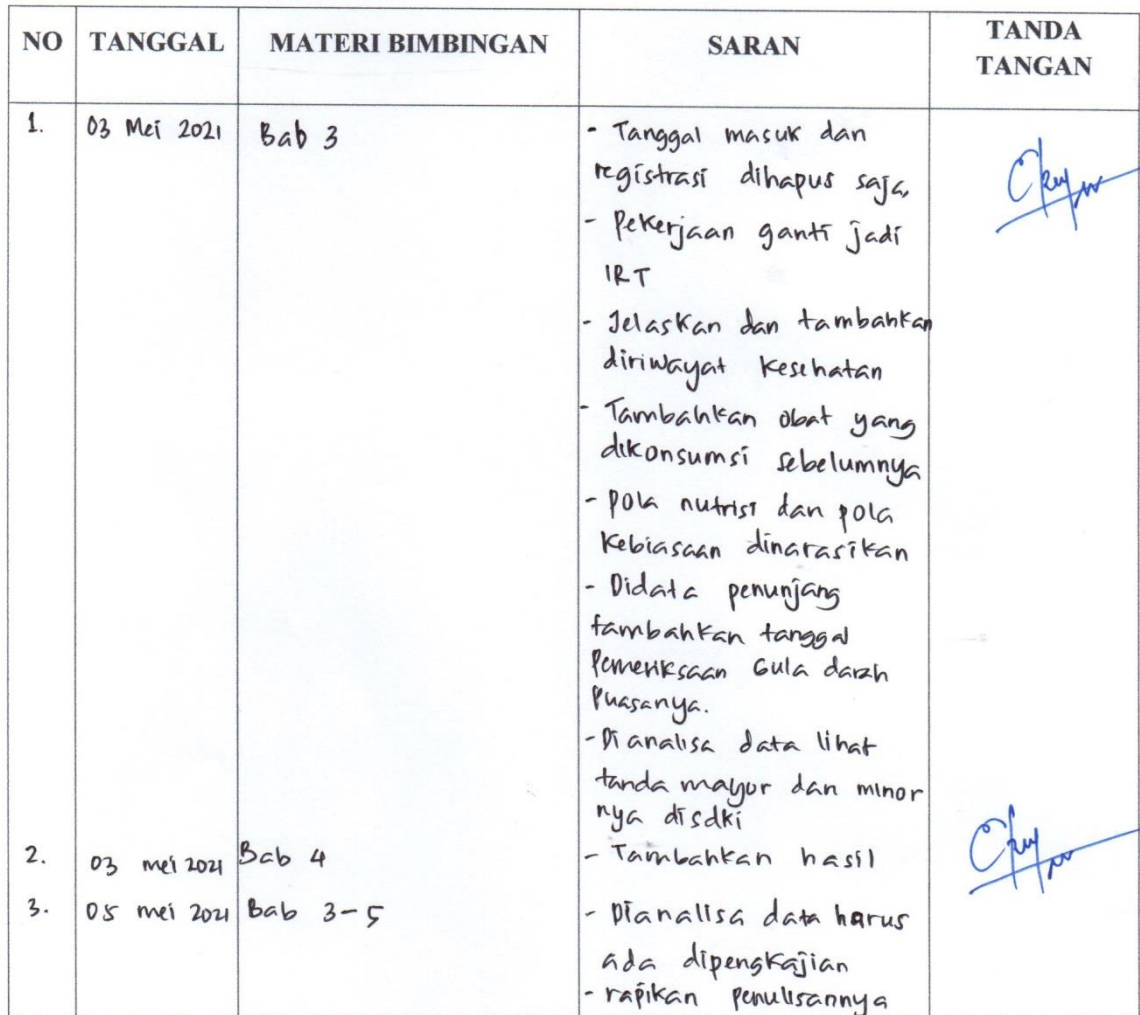 NO TANGGAL MATERI BIMBINGAN SARAN TANDA TANGAN
1. 03 Mei 2021 Bab 3 - Tanggal masuk dan
registrasi dihapus saja,
- Pekerjaan ganti jadi
IRT
- Jelaskan dan tambahkan
diriwayat kesehatan
- Tambahkan obat yang
dikonsumsi sebelumnya
- pola nutrisi dan pola
kebiasaan dinarasikan
- Didata penunjang
tambahkan tanggal
Pemeriksaan Gula darah
Puasanya.
- Dianalisa data lihat
tanda mayor dan minor
nya disdki
2. 03 mei 2021 Bab 4 - Tambahkan hasil
3. 05 mei 2021 Bab 3-5 - Dianalisa data harus
ada dipengkajian
- rapikan penulisannya